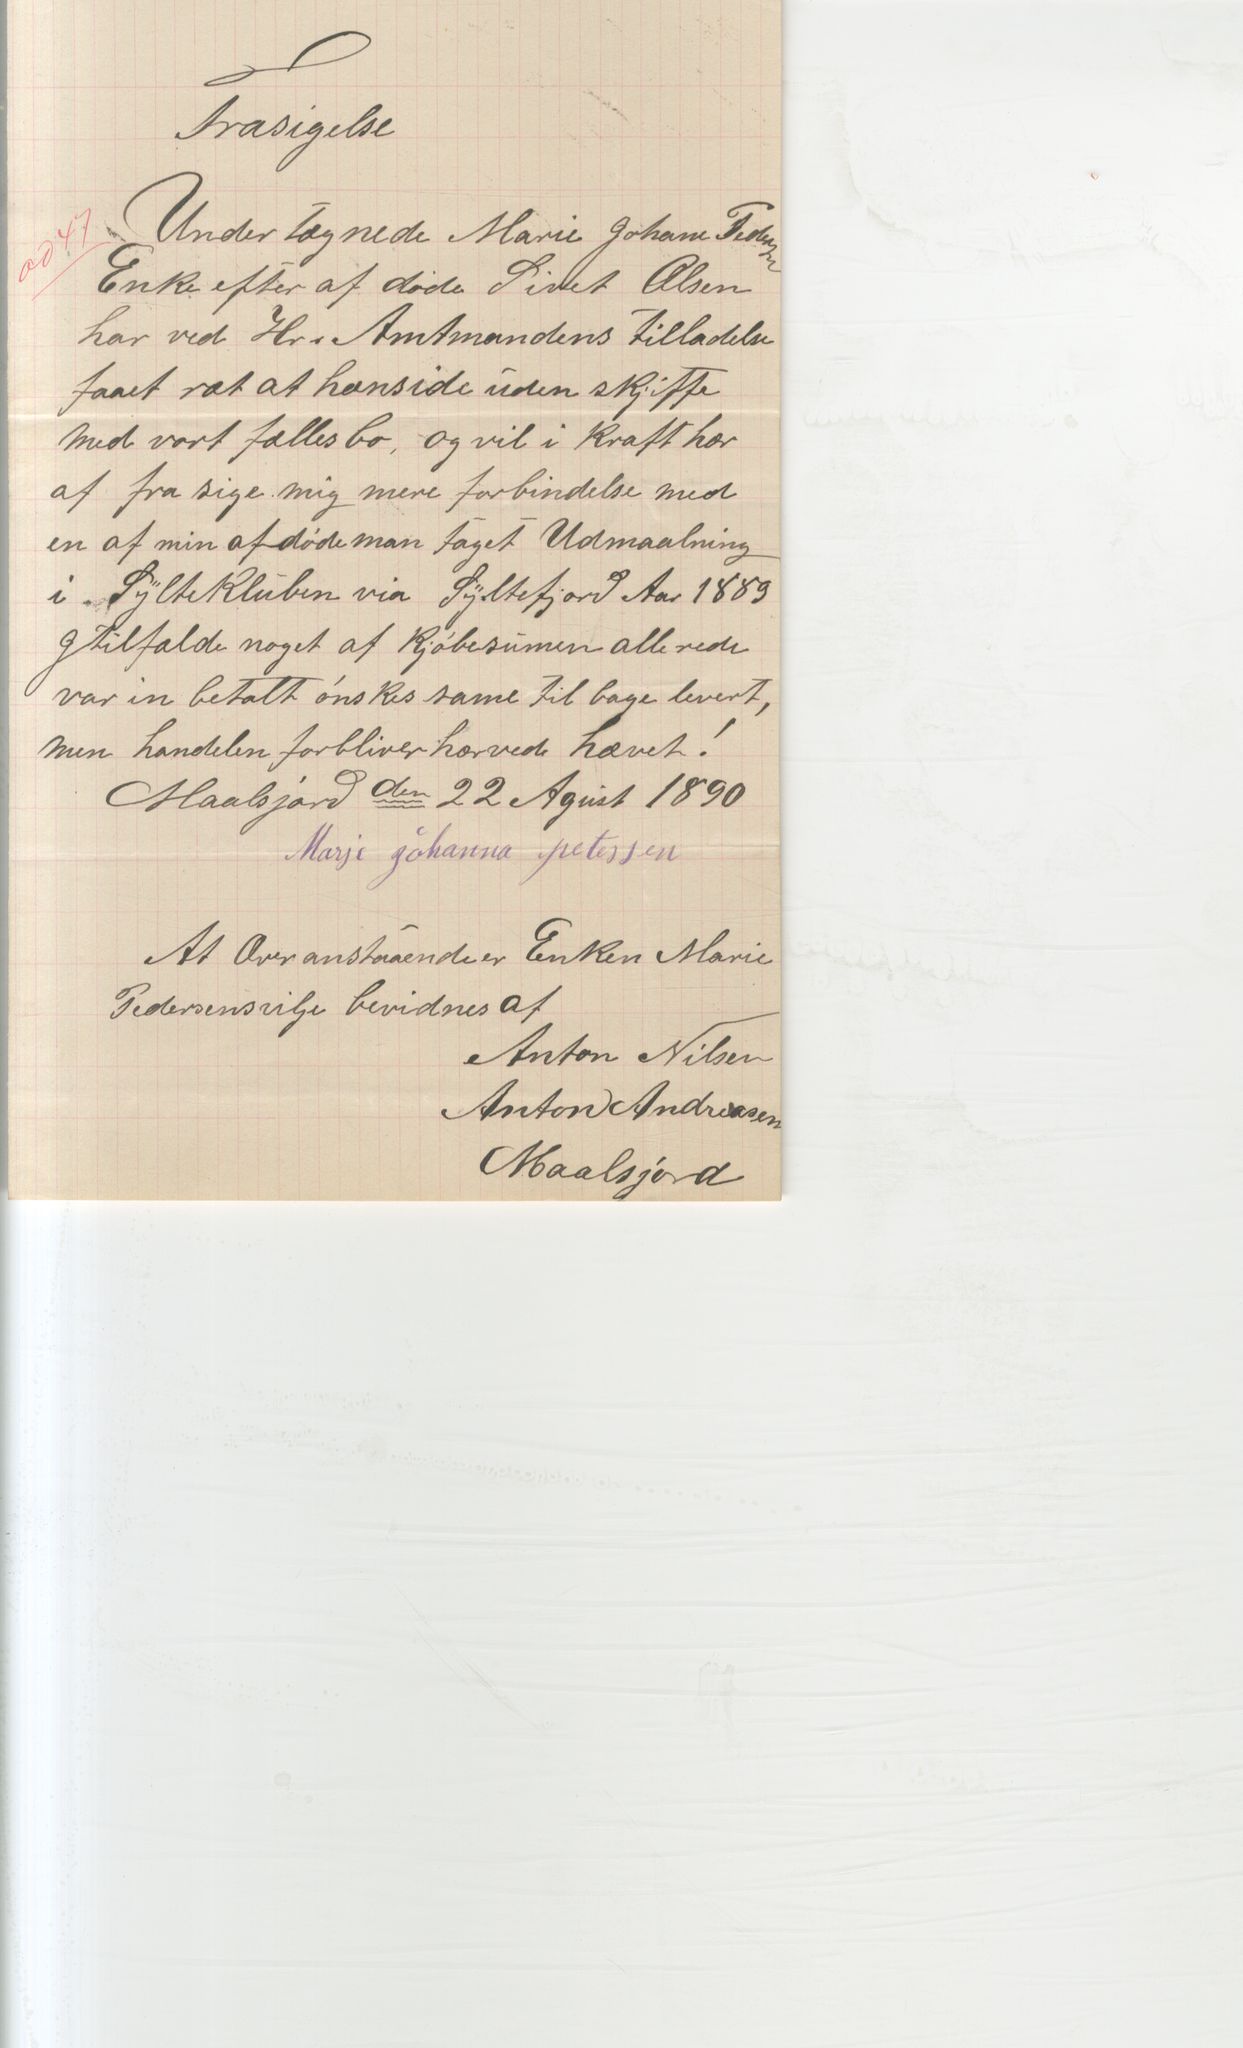 Frasigelse
ad 47
Undertegnede Marie Johane Pedersen
Enke efter af døde Sivet Olsen
har ved Hr. Amtmandens tilladelse
faaet ræt at hænside uden skjifte
med vort fællesbo, og vil i kraft hær
af fra sige mig mere forbindelse med
en af min afdøde man taget Udmaalning
i Sylteklüben via Syltefjord Aar 1889
I tilfælde noget af kjøbesumen allerede
var in betalt ønskes same til bage levert,
men handelen forbliver hærvede hævet!
Maalsjord den 22 Agust 1890
Marje Johanna petersen
At Overanstaaende er Enken Marie
Pedersens vilje bevidnes af
Anton Nilsen
Anton Andreasen
Maalsjord